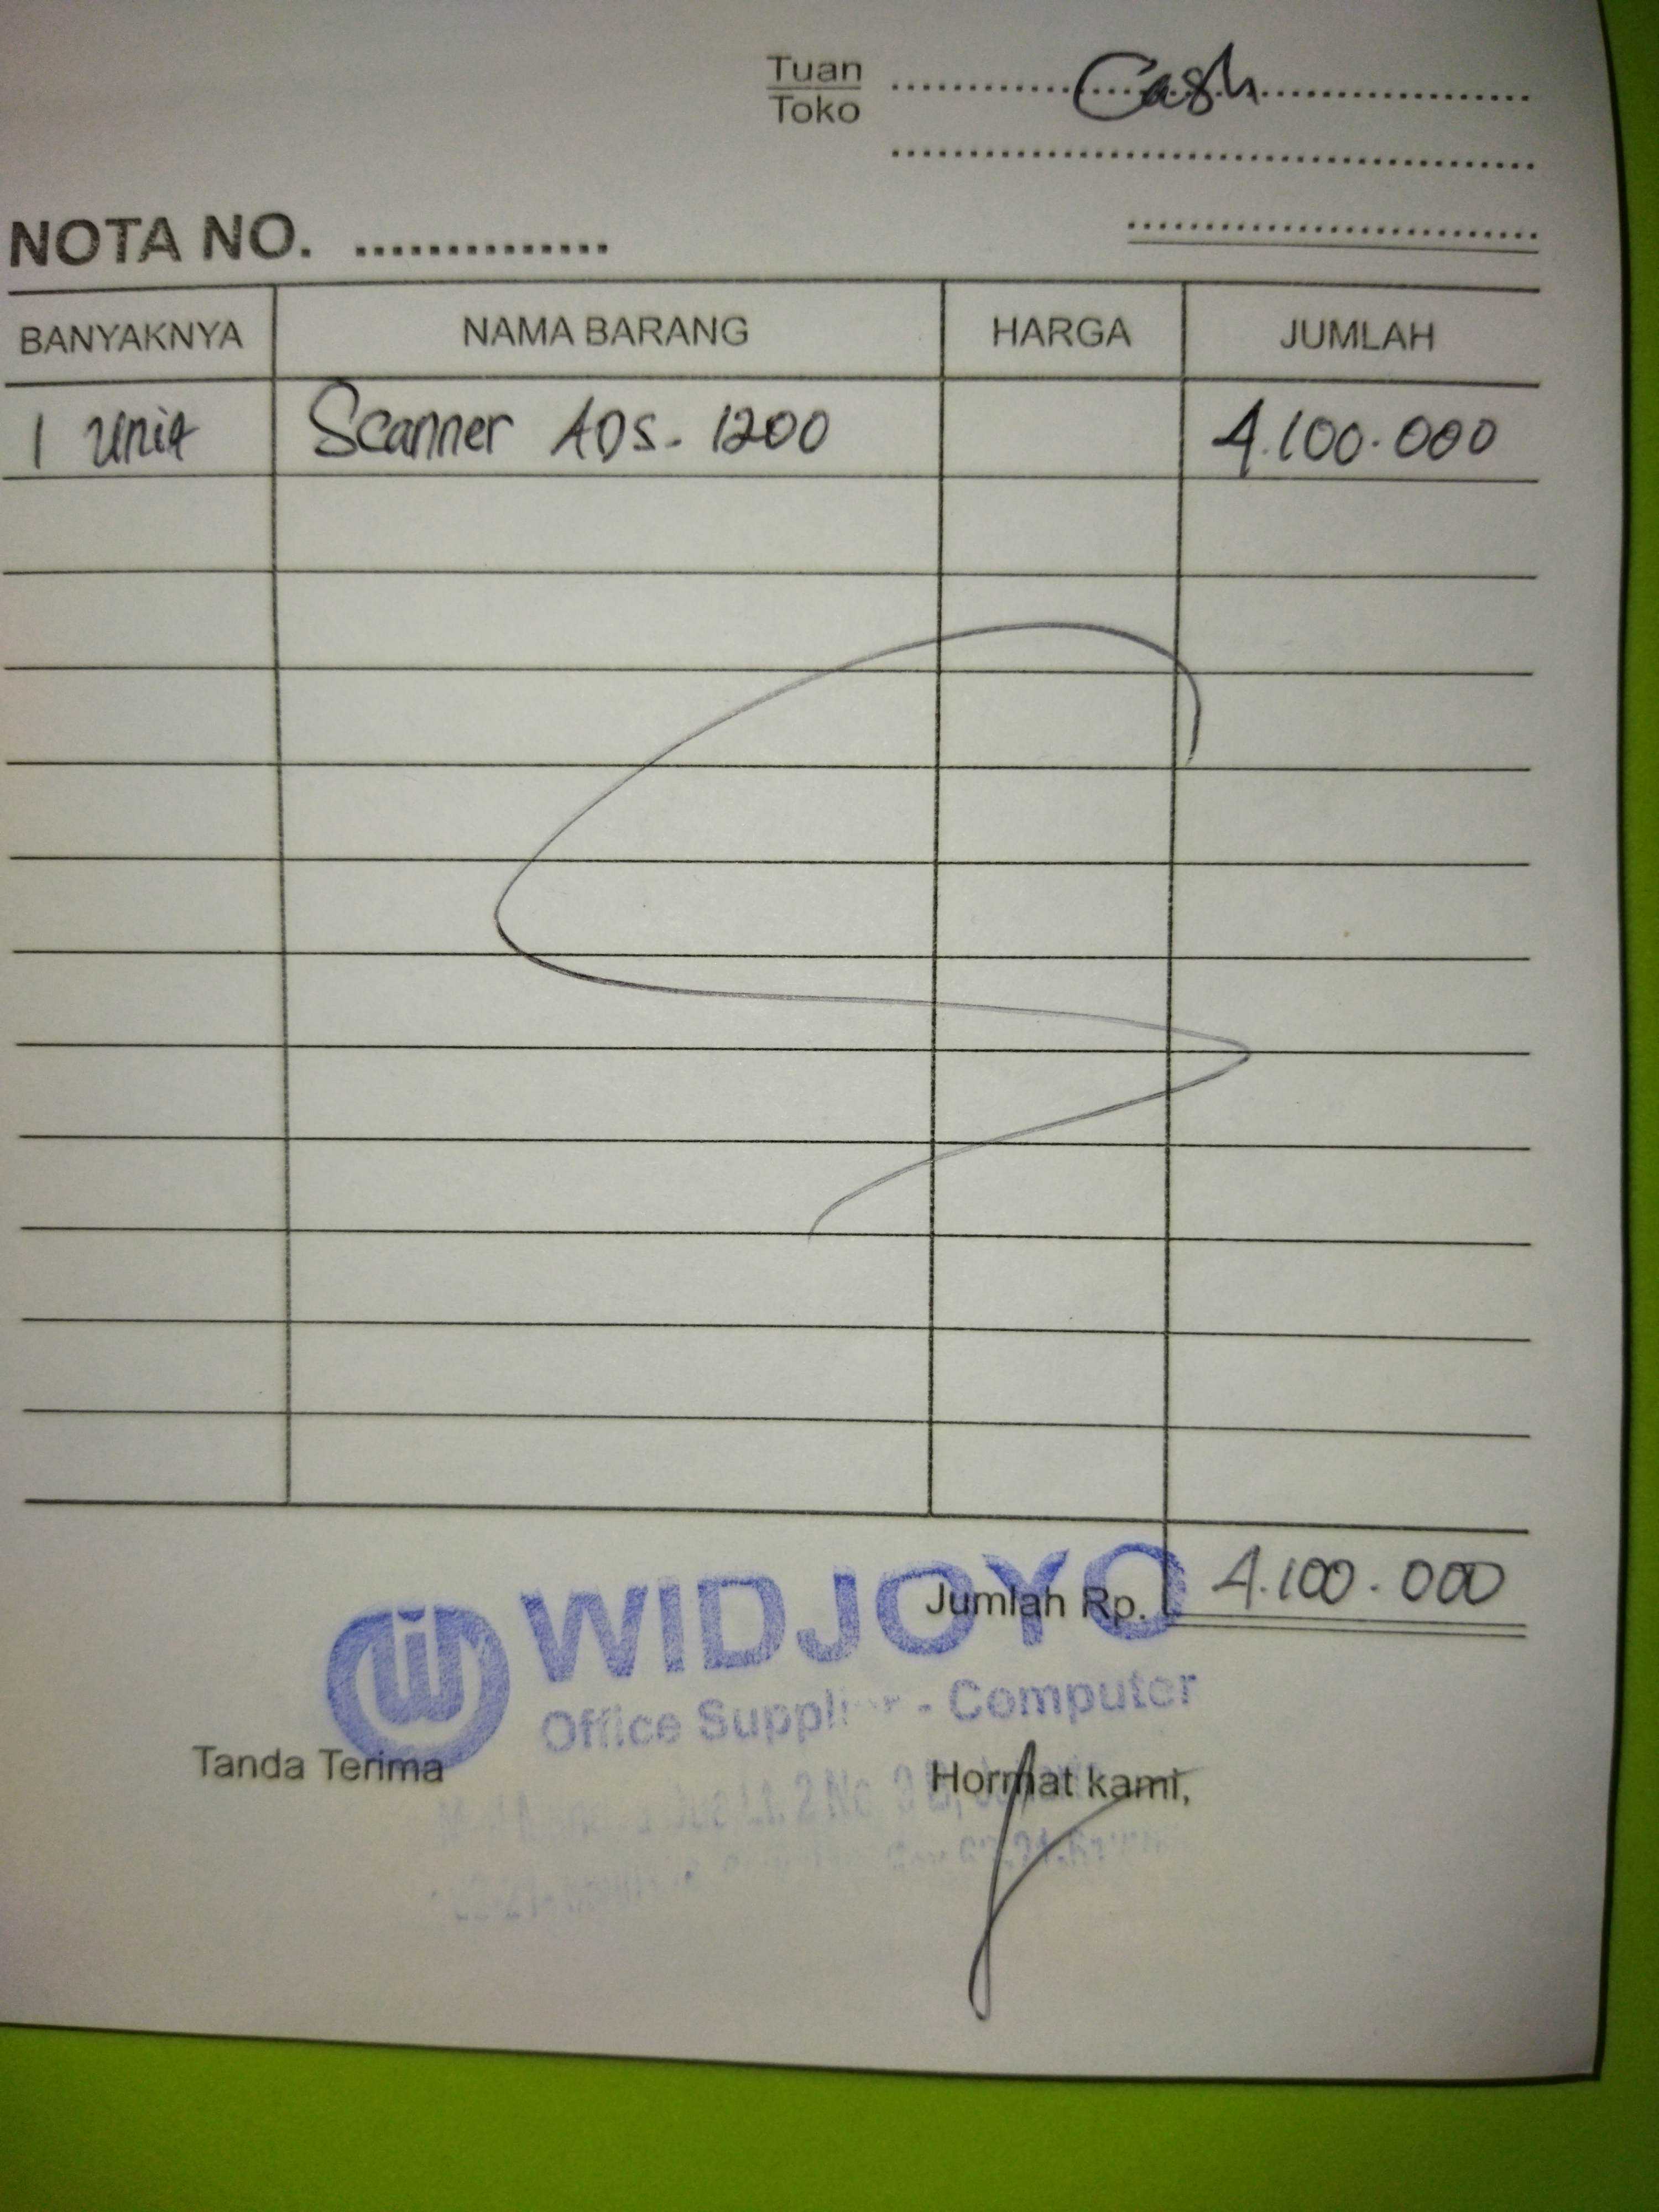 Tuan
Toko
Cash
NOTA NO.
BANYAKNYA NAMA BARANG HARGA JUMLAH
1 Unit Scanner ADS-1200 4.100.000
Jumlah Rp. 4.100.000
WIDJOYO
Office Supplier - Computer
Tanda Terima Hormat kami,
Lt. 2 No